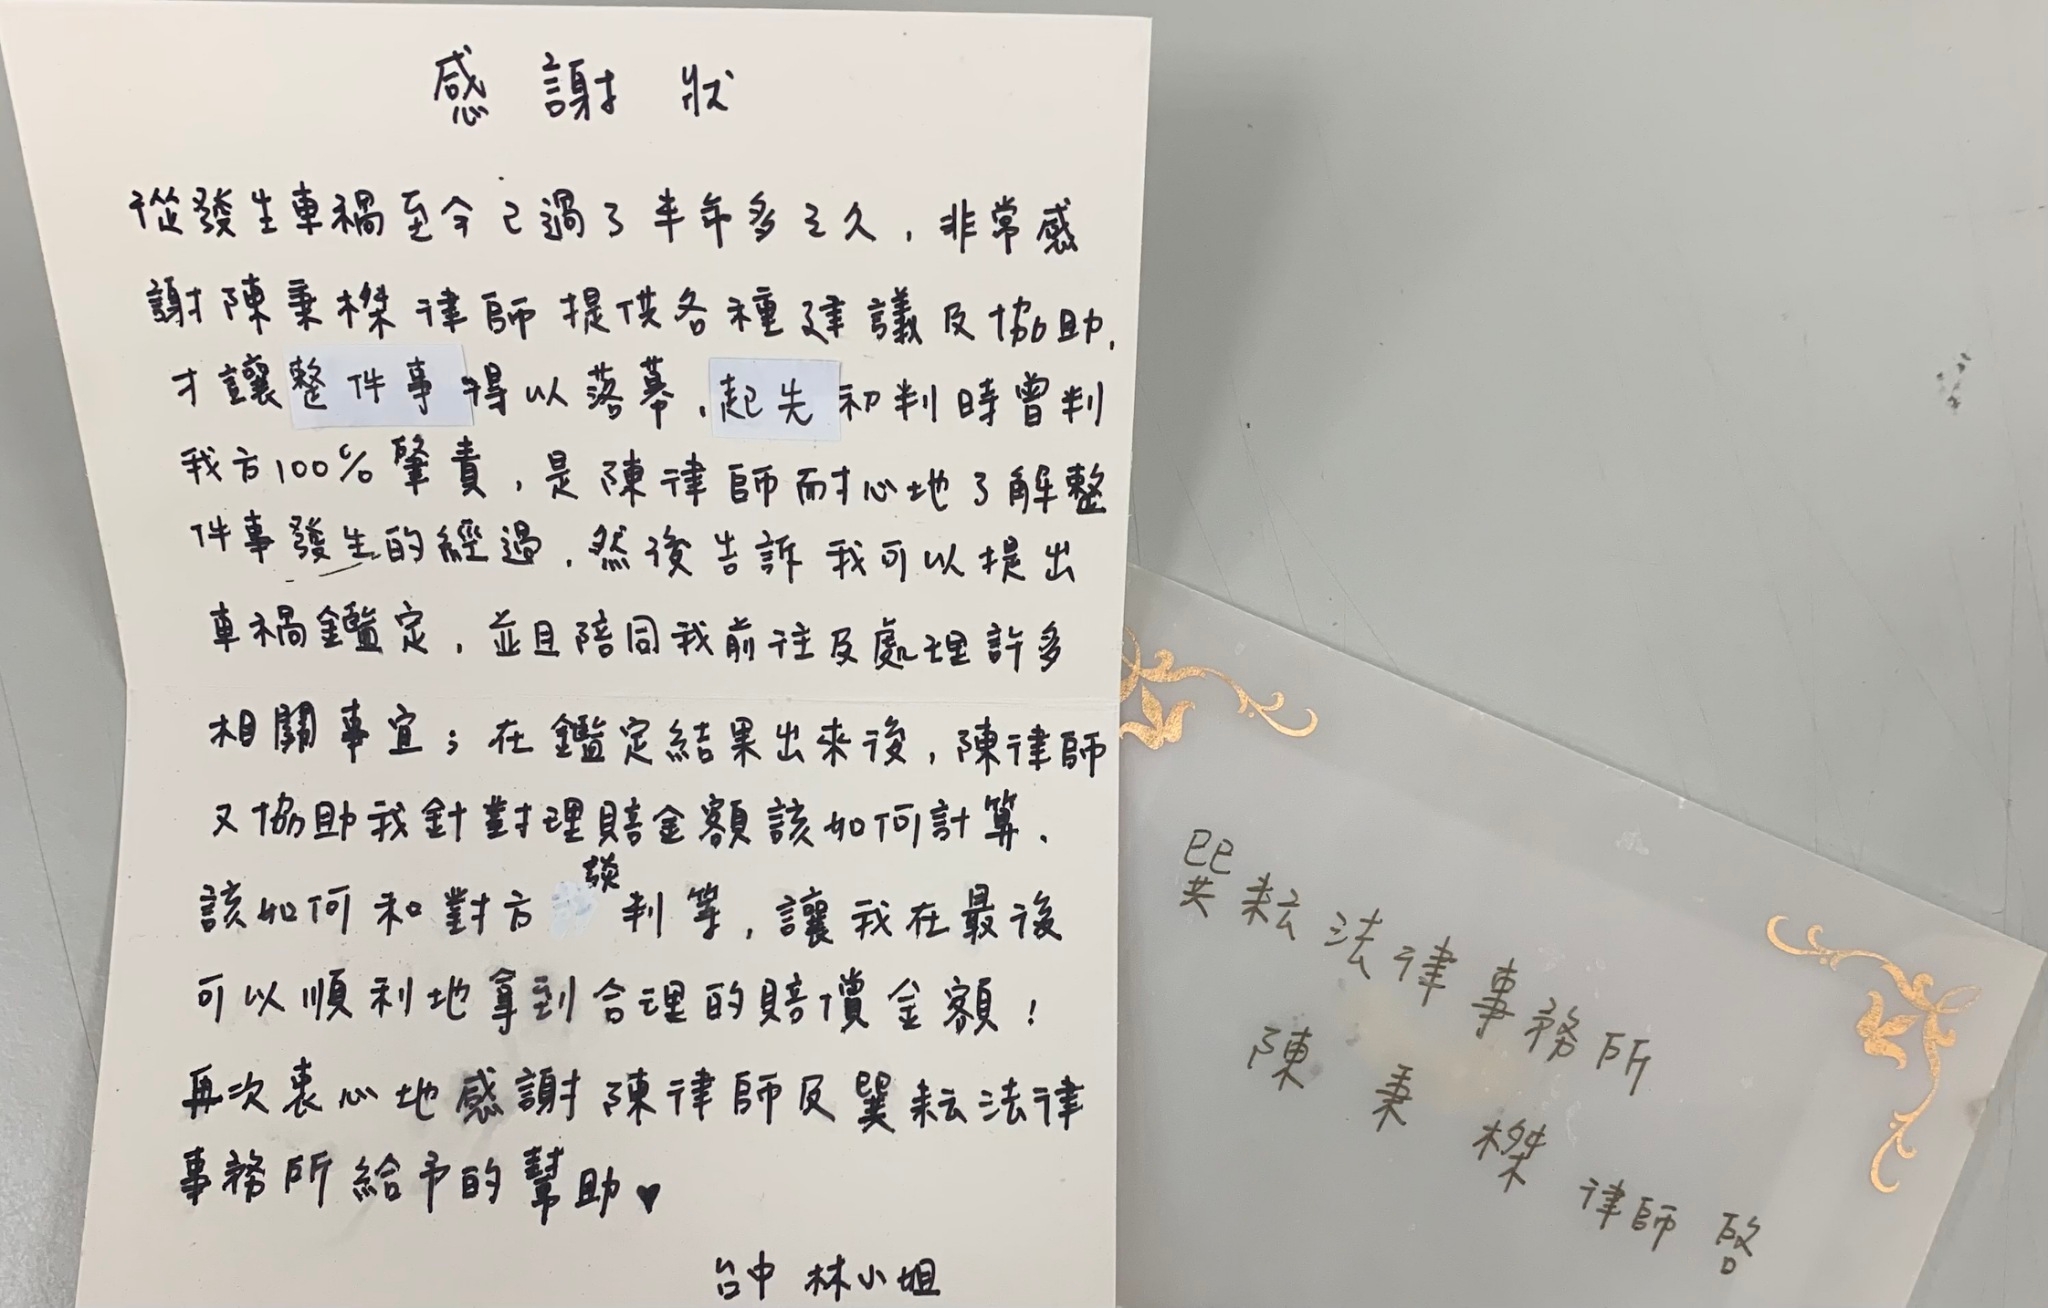 感謝狀
從發生車禍至今已過了半年多之久，非常感
謝陳秉榤律師提供各種建議及協助，
才讓整件事得以落幕，起先初判時曾判
我方100%肇責，是陳律師耐心地了解整
件事發生的經過，然後告訴我可以提出
車禍鑑定，並且陪同我前往及處理許多
相關事宜；在鑑定結果出來後，陳律師
又協助我針對理賠金額該如何計算、
該如何和對方談判等，讓我在最後
可以順利地拿到合理的賠償金額！
再次衷心地感謝陳律師及巽耘法律
事務所給予的幫助♥
台中 林小姐
巽耘法律事務所
陳秉榤律師啓